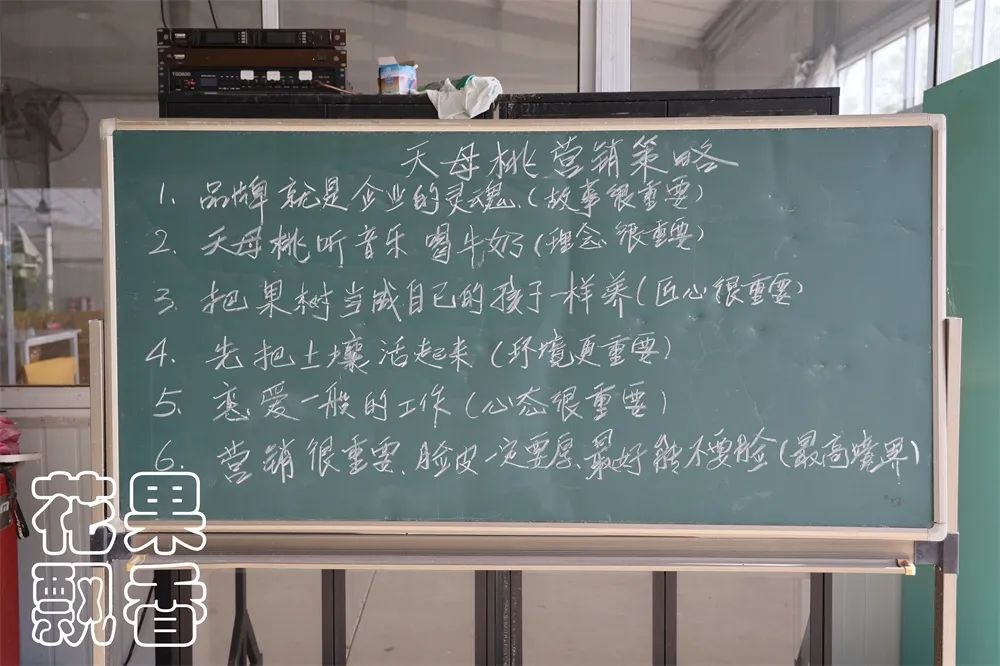 天母桃营销策略
1. 品牌就是企业的灵魂.(故事很重要)
2. 天母桃听音乐喝牛奶(理念很重要)
3. 把果树当成自己的孩子一样养(匠心很重要)
4. 先把土壤活起来(环境更重要)
5. 恋爱一般的工作(心态很重要)
6. 营销很重要、脸皮一定要厚、最好能不要脸(最高境界)
花果
飘香